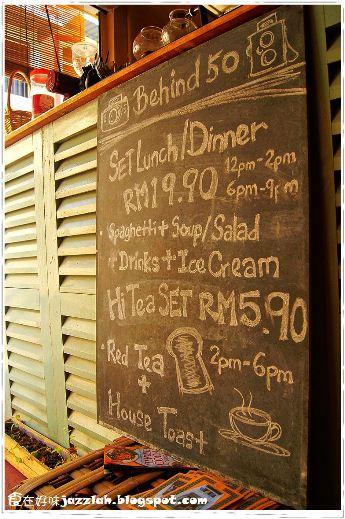 Behind 50
SET Lunch/Dinner
RM19.90 12pm-2pm
6pm-9pm
• Spaghetti + Soup/Salad
+ Drinks + Ice Cream
Hi Tea SET RM5.90
• Red Tea 2pm-6pm
+
House Toast
自在好味jazzlah.blogspot.com